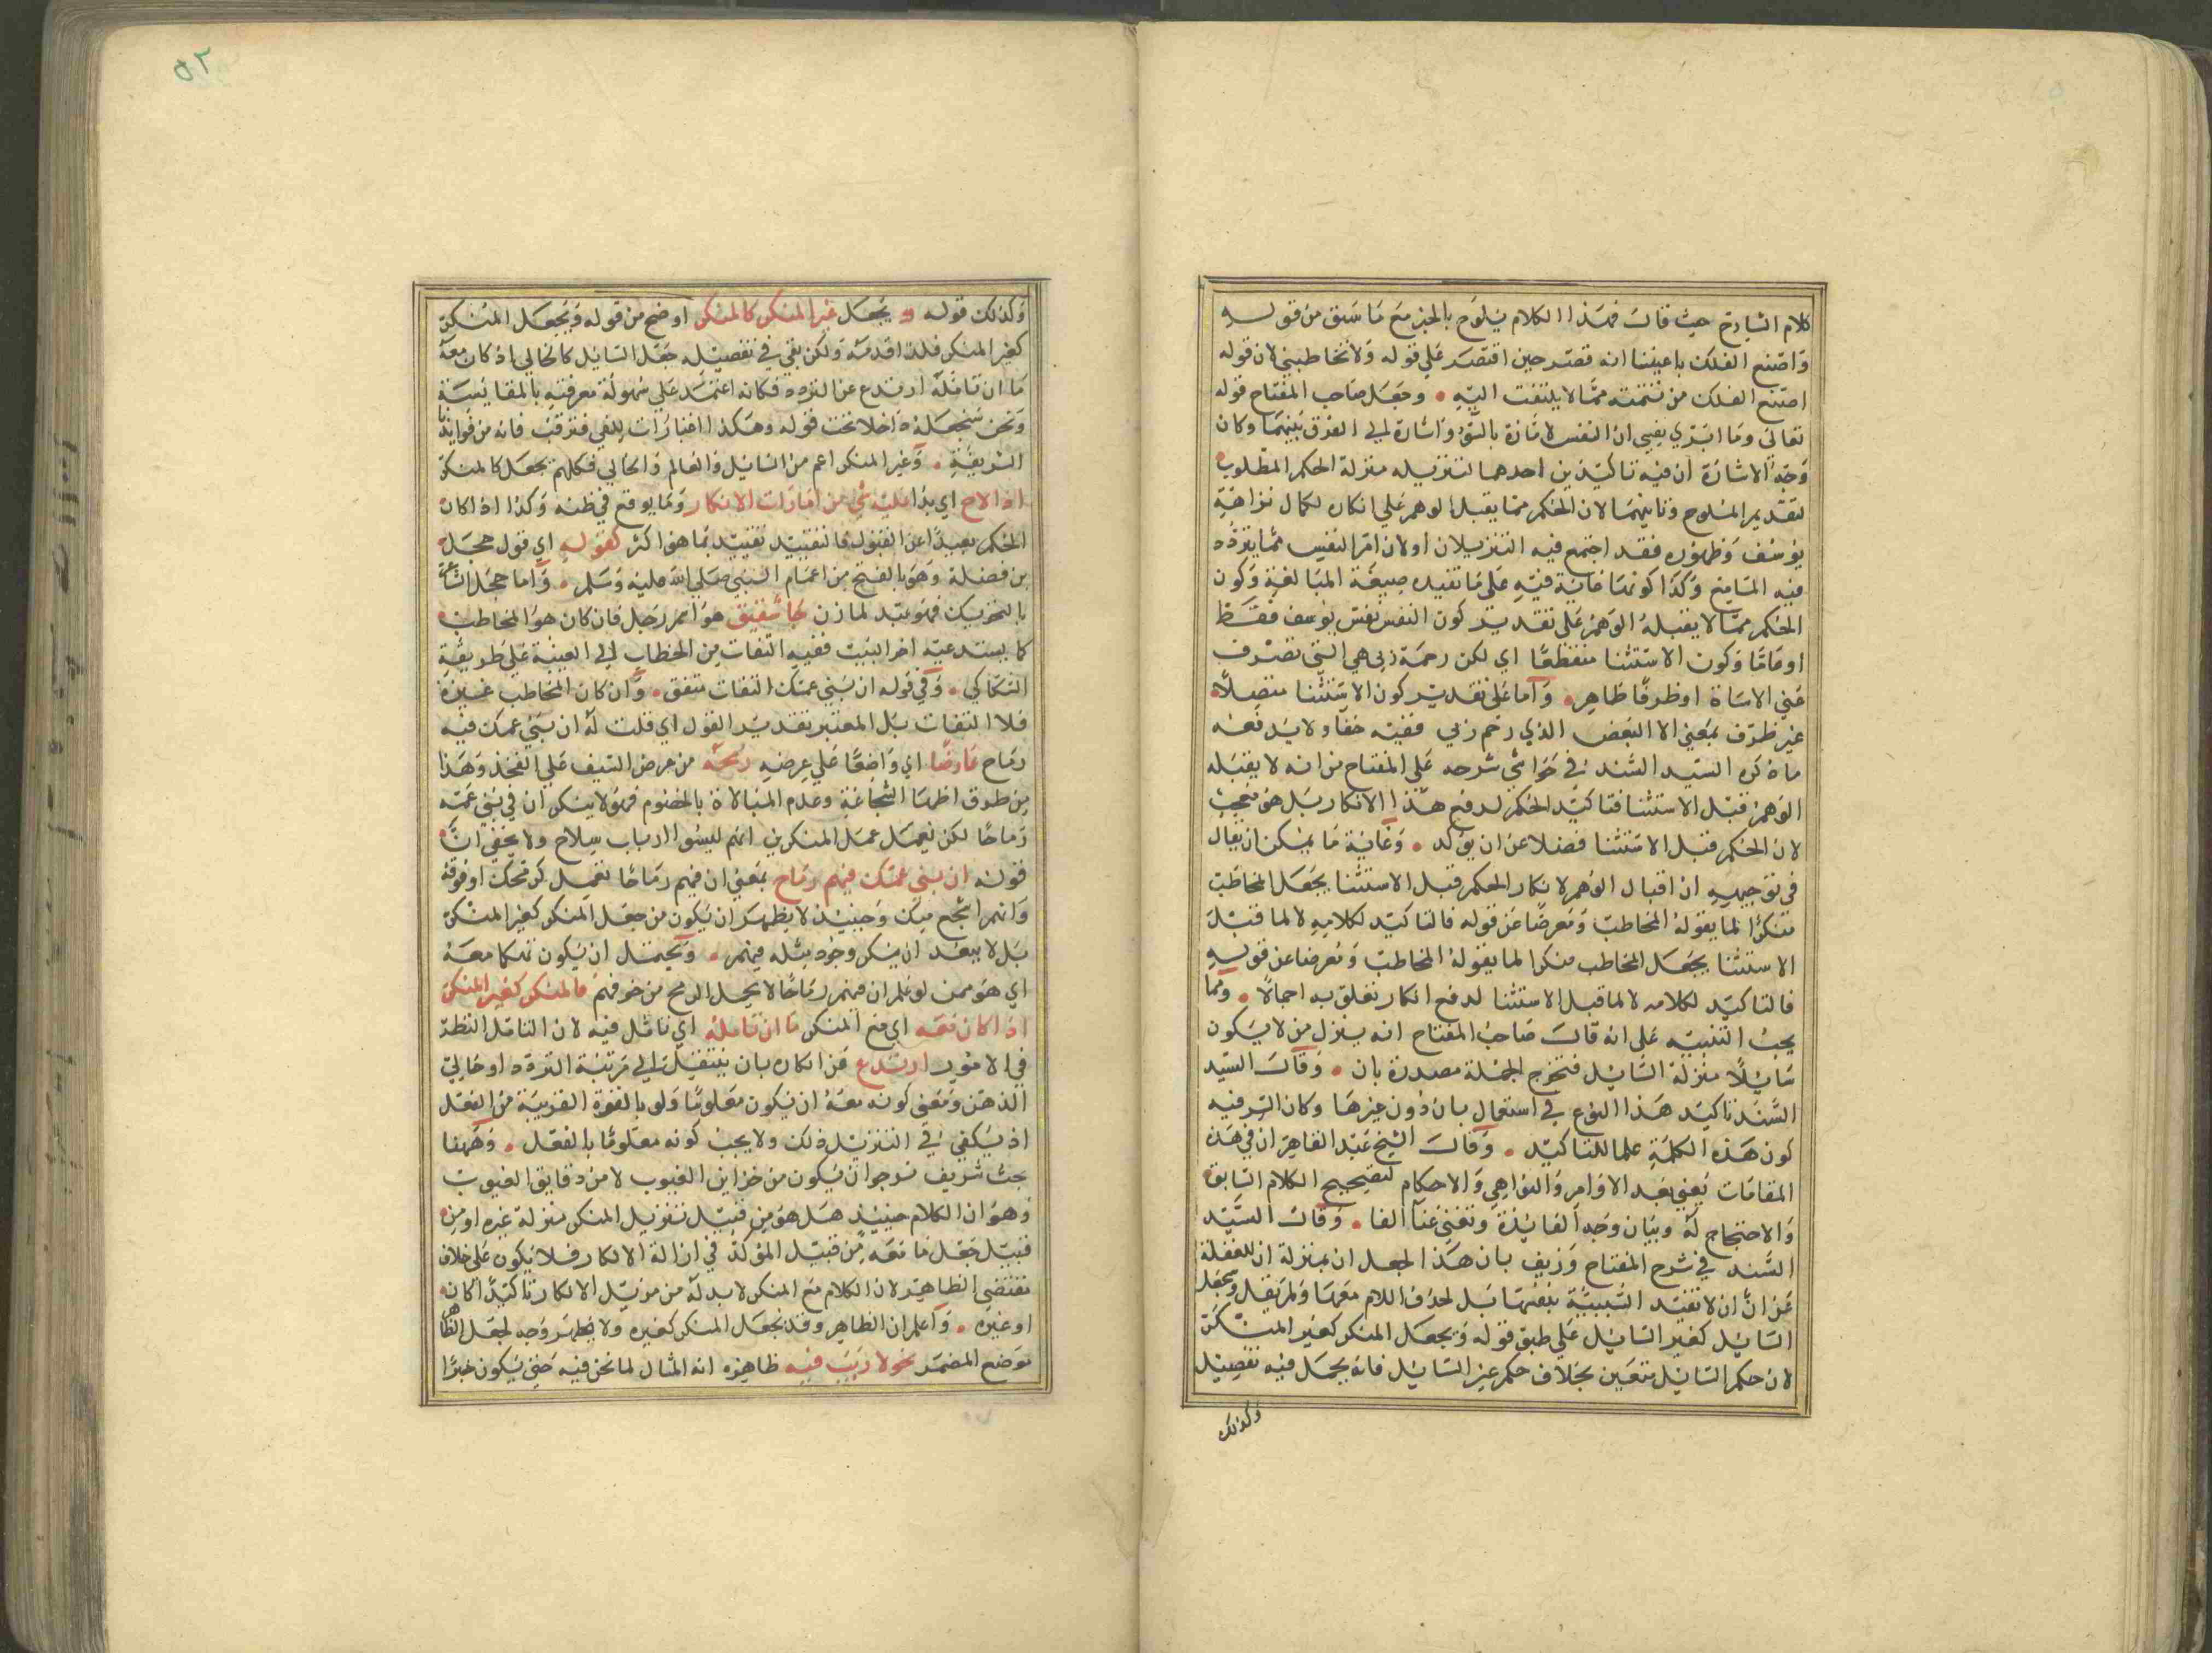 كلام الشارح حيث قال فهذا الكلام يلوح بالخبر مع ما سبق من قوله
واصنع الفلك باعيننا انه قصر حين اقتصر على قوله ولا تخاطبني لان قوله
اصنع الفلك من تتمته مما لا يلتفت اليه • وجعل صاحب المفتاح قوله
تعالى وما ابرئ نفسي ان النفس لامارة بالسوء واشارة الى الفرق بينهما وكان
وجه الاشارة ان فيه تاكيدين احدهما لتنزيله منزلة الحكم المطلوب
لتقديم الملوح وثانيهما لان الحكم مما يقبل الوهم على انكاره لكمال نزاهة
يوسف وظهوره فقد اجتمع فيه التنزيلان اولان امر النفس مما يتردد
فيه السامع وكذا كونها غاية فيه على ما تفيده صيغة المبالغة وكون
الحكم مما لا يقبله الوهم على تقدير كون النفس نفس يوسف فقط
او عاما وكون الاستثنا منقطعا اي لكن رحمة ربي هي التي تصرف
عني الاساة او ظرفا ظاهر • واما على تقدير كون الاستثنا متصلا
غير ظرف بمعنى الا البعض الذي رحم ربي ففيه خفا ولا يدفعه
ما ذكره السيد السند في حواشي شرحه على المفتاح من انه لا يقبله
الوهم قبل الاستثنا فتاكيد الحكم لدفع هذا الانكار بل هو عجيب
لان الحكم قبل الاستثنا فضلا عن ان يؤكد • وغاية ما يمكن ان يقال
في توجيهه ان اقبال الوهم لانكار الحكم قبل الاستثنا يجعل المخاطب
منكرا لما يقوله المخاطب ومعرضا عن قوله فالتاكيد لكلامه لا لما قبل
الاستثنا يجعل المخاطب منكرا لما يقوله المخاطب ومعرضا عن قوله
فالتاكيد لكلامه لا لما قبل الاستثنا لدفع انكار تعلق به اجمالا • ومما
يجب التنبيه على انه قال صاحب المفتاح انه ينزل من لا يكون
سايلا منزلة السايل فتخرج الجملة مصدرة بان • وقال السيد
السند تاكيد هذا النوع في استعمال بان دون غيرها وكان السر فيه
كون هذه الكلمة علما للتاكيد • وقال الشيخ عبد القاهر ان في هذه
المقامات يعني بعد الاوامر والنواهي والاحكام لتصحيح الكلام السابق
والاحتجاج له وبيان وجه الفايدة وتغني غنا الفا • وقال السيد
السند في شرح المفتاح وزيف بان هذا الجعل ان بمنزلة ان للغفلة
عن ان ان لا تفيد السببية بنفسها بل لحذف اللام معها ولم يقل ويجعل
السايل كغير السايل على طبق قوله ويجعل المنكر كغير المنكر
لان حكم السايل متعين بخلاف حكم غير السايل فانه يجعل فيه تفصيل
وكذلك
٥٢
وكذلك قوله و يجعل غير المنكر كالمنكر اوضح من قوله ويجعل المنكر
كغير المنكر فلذا قدمه ولكن بقي في تفصيله جعل السايل كالخالي اذ كان معه
ما ان تامله ارتدع عن التردد فكانه اعتمد على سهولة معرفته بالمقايسة
ونحن سنجعله داخلا تحت قوله وهكذا اعتبارات النفي فترقب فانه من فوايدنا
الشريفة • وغير المنكر اعم من السايل والعالم والخالي فكلهم يجعل كالمنكر
اذا لاح اي بدا عليه شي من امارات الانكار ومما يوقع في ظنه وكذا اذا كان
الحكم بعيدا عن القبول فالتقييد تقييد بما هو اكثر كقوله اي قول حجل
بن فضلة وهو بالفتح من اعمام النبي صلى الله عليه وسلم • واما حجل الشاعر
بالتحريك فهو عبد لمازن جا شقيق هو اسم رجل فان كان هو المخاطب
كما يستدعيه اخر البيت ففيه التفات من الخطاب الى الغيبة على طريقة
السكاكي • وفي قوله ان بني عمك التفات متفق • وان كان المخاطب غيره
فلا التفات بل المعتبر تقدير القول اي قلت له ان بني عمك فيه
رماح عارضا اي واضعا على عرضه رمحه من عرض السيف على الفخذ وهذا
من طرق اظهار الشجاعة وعدم المبالاة بالخصوم فهو لا ينكر ان في بني عمه
رماحا لكن يعمل عمل المنكرين انهم ليسوا ارباب سلاح ولا يخفى ان
قوله ان بني عمك فيهم رماح بمعنى ان فيهم رماحا تعمل كرمحك او فوقه
وانهم اشجع منك وحينيذ لا يظهر ان يكون من جعل المنكر كغير المنكر
بل لا يبعد ان ينكر وجود مثله فيهم • ويحتمل ان يكون تهكما معه
اي هو ممن لو علم ان فيهم رماحا لا يحمل الرمح من خوفهم فالمنكر كغير المنكر
اذا كان معه اي مع المنكر ما ان تامله اي تامل فيه لان التامل النظر
في الامور ارتدع عن انكاره بان ينتقل الى مرتبة التردد او خالي
الذهن ومعنى كونه معه ان يكون معلوما ولو بالقوة القريبة من الفعل
اذ يكفي في التنزيل ذلك ولا يجب كونه معلوما بالفعل • وههنا
بحث شريف نرجو ان يكون من خزاين الغيوب لا من دقايق العيوب
وهو ان الكلام حينيذ هل هو من قبيل تنزيل المنكر منزلة غيره او من
قبيل جعل ما معه من قبيل المؤكد في ازالة الانكار فلا يكون على خلاف
مقتضى الظاهر لان الكلام مع المنكر لا بد له من مزيل الانكار تاكيدا كان
او غيره • واعلم ان الظاهر وقد يجعل المنكر كغيره ولا يظهر وجه لجعل الظاهر
موضع المضمر نحو لا ريب فيه ظاهره انه المثال لما نحن فيه حتى يكون خبرا